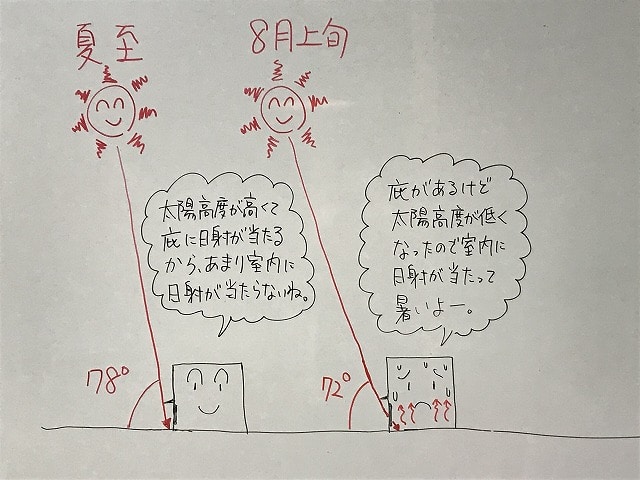 夏至
8月上旬
太陽高度が高くて
庇に日射が当たる
から、あまり室内に
日射が当たらないね。
庇があるけど
太陽高度が低く
なったので室内に
日射が当たって
暑いよー。
78°
72°